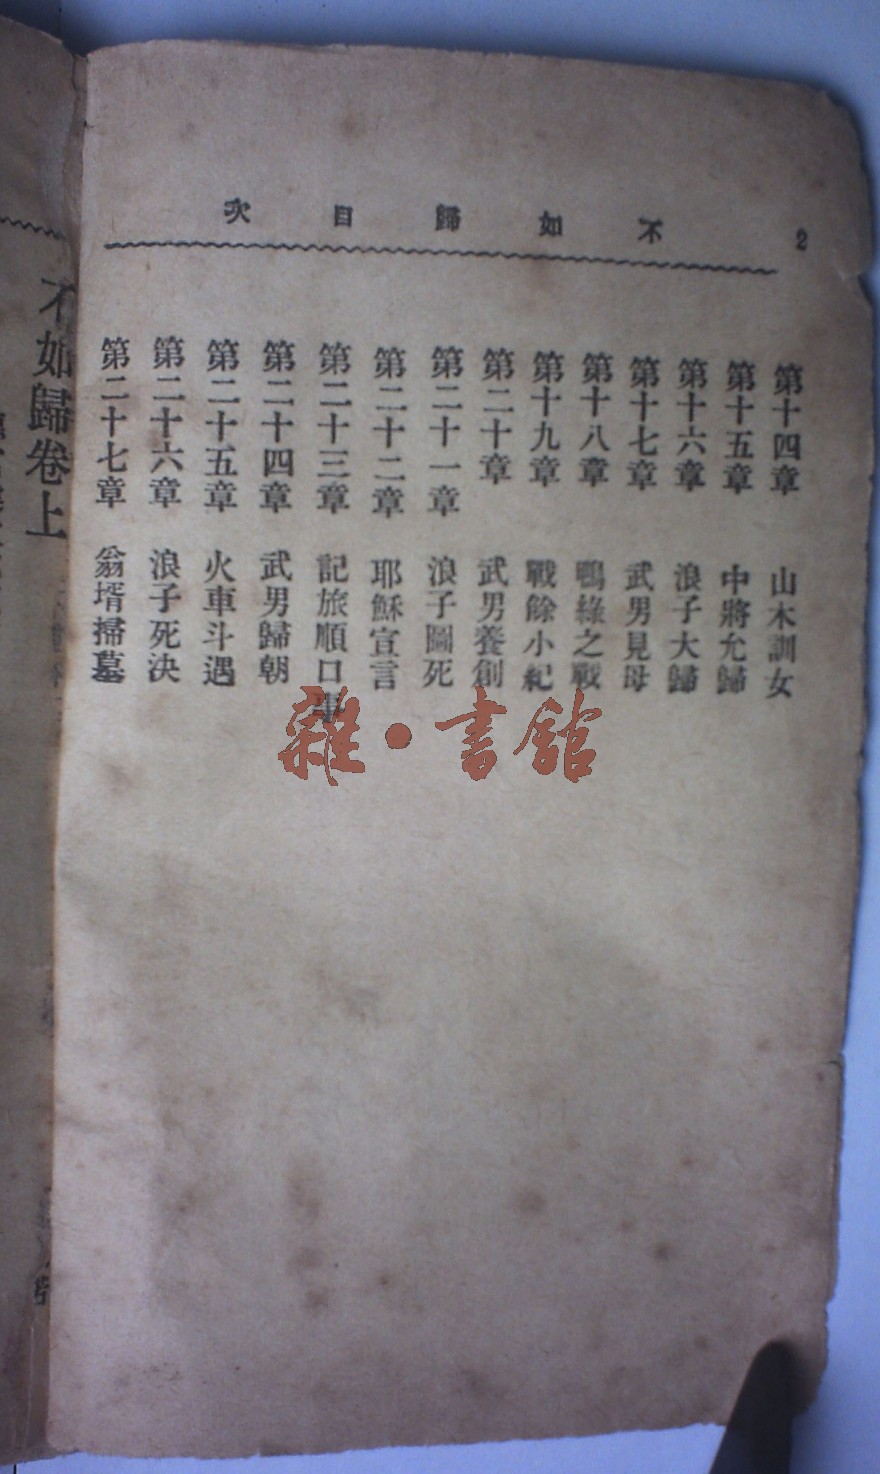 2 不如歸目次
第十四章 山木訓女
第十五章 中將允歸
第十六章 浪子大歸
第十七章 武男見母
第十八章 鴨綠之戰
第十九章 戰餘小紀
第二十章 武男養創
第二十一章 浪子圖死
第二十二章 耶穌宣言
第二十三章 記旅順口事
第二十四章 武男歸朝
第二十五章 火車斗遇
第二十六章 浪子死決
第二十七章 翁壻掃墓
不如歸卷上
雜·書館